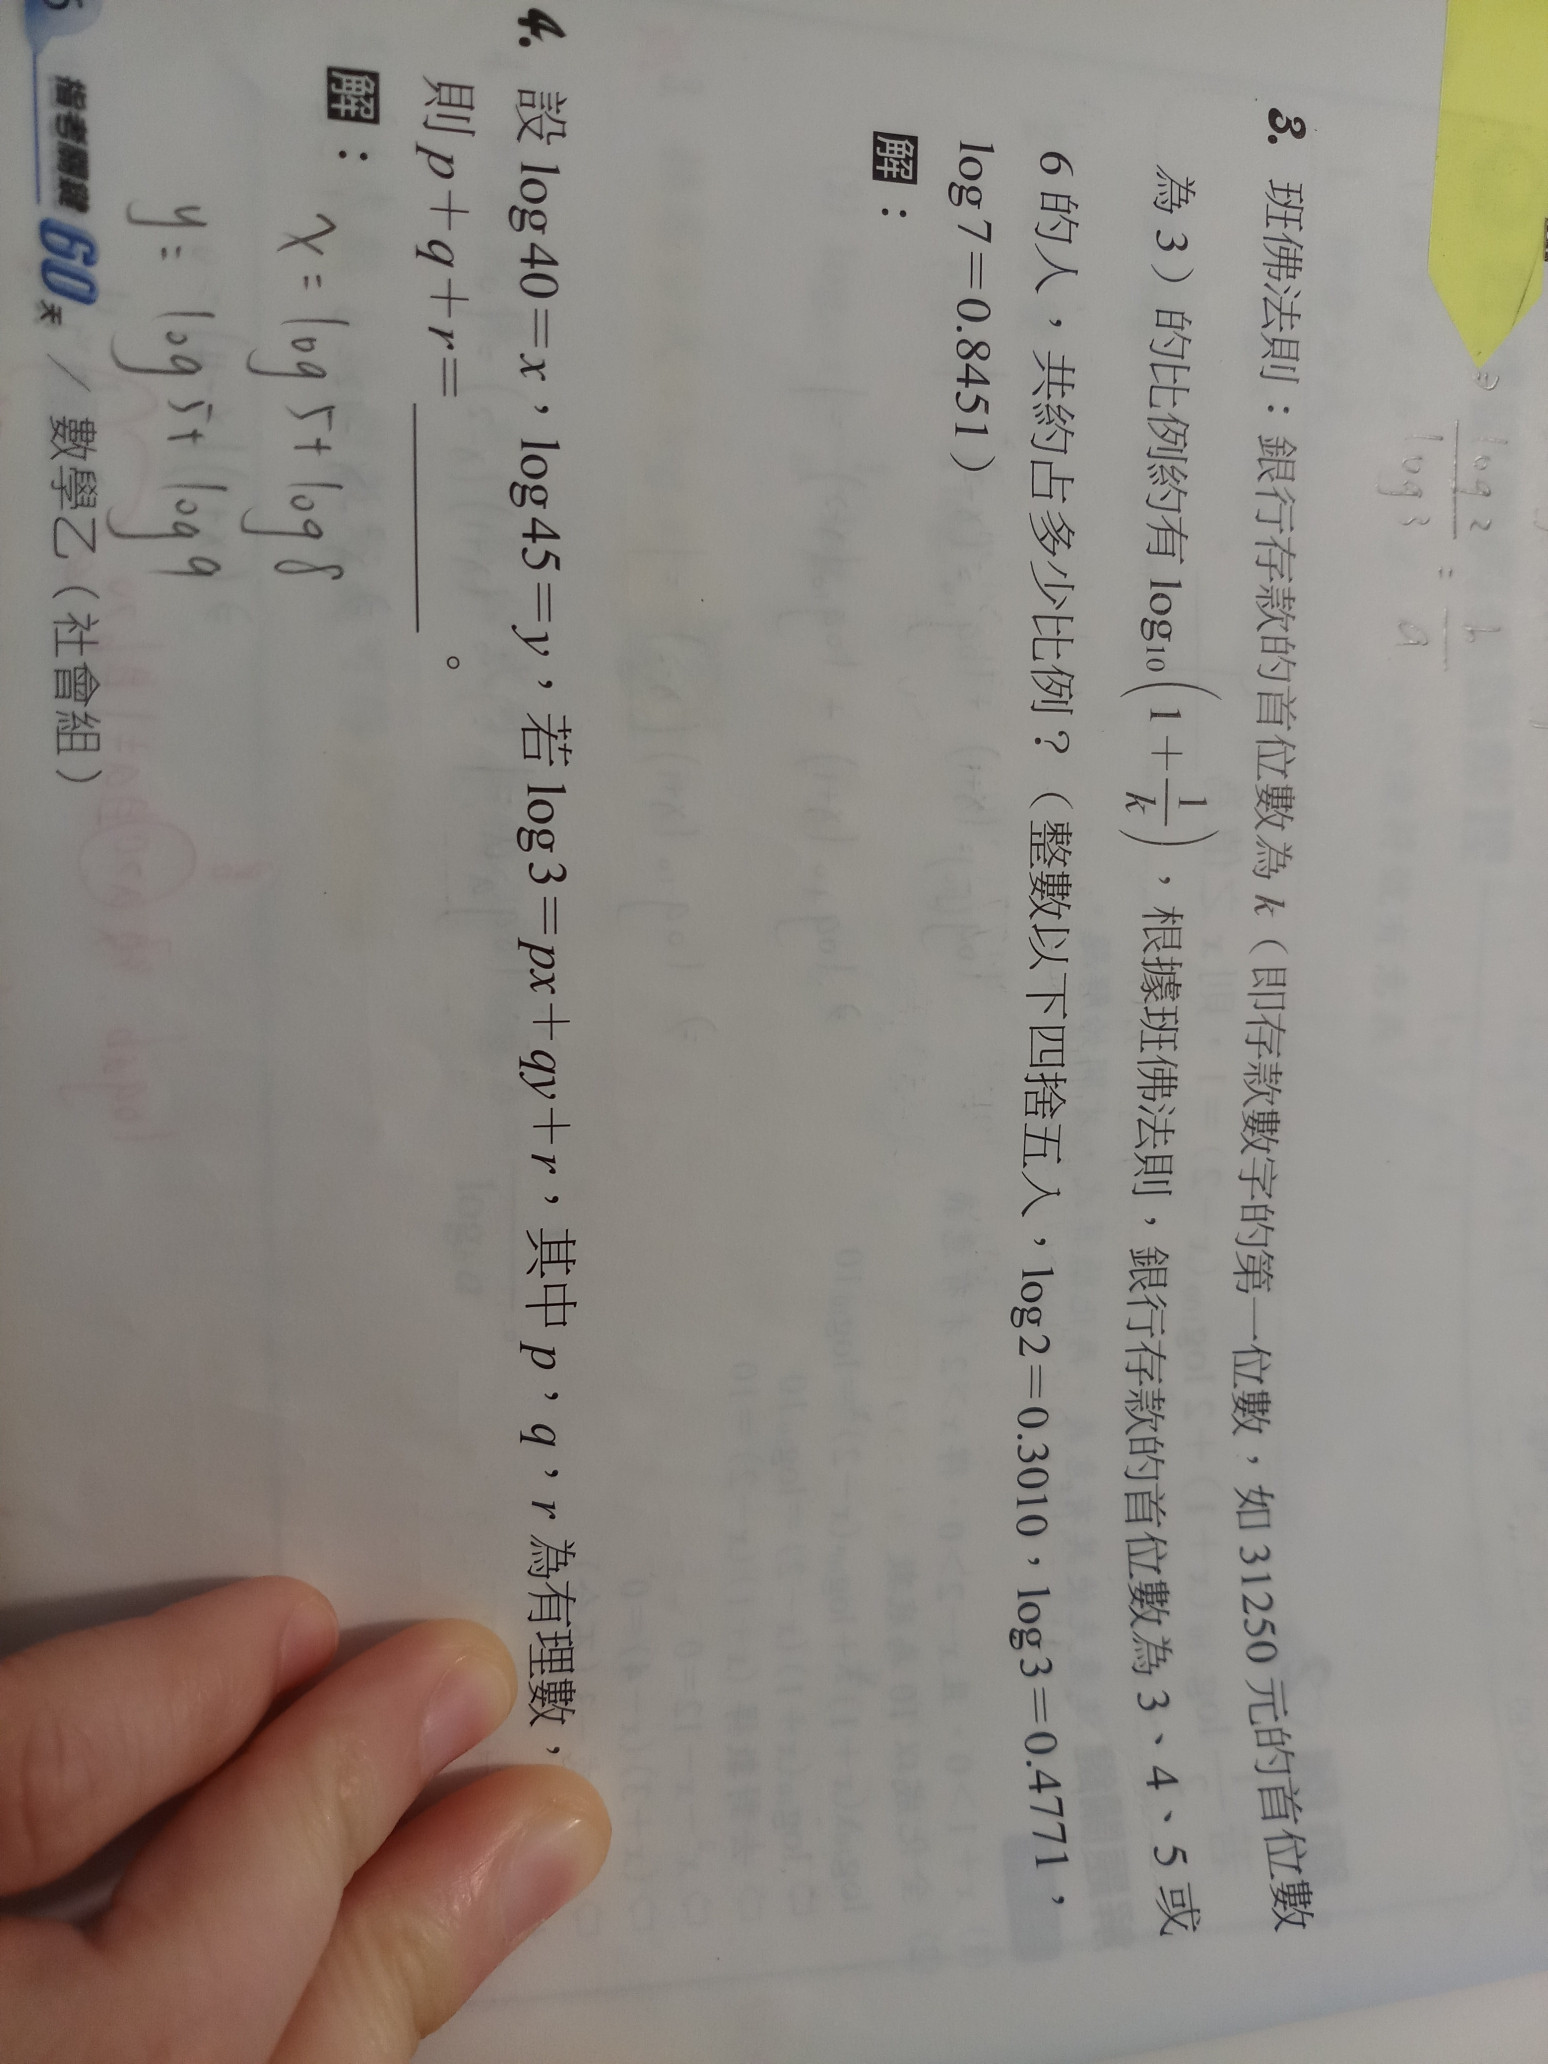 log 2
log 3
=
b
a
3. 班佛法則：銀行存款的首位數為 k（即存款數字的第一位數，如 31250 元的首位數
為 3）的比例約有 log₁₀(1+1/k)，根據班佛法則，銀行存款的首位數為 3、4、5 或
6 的人，共約占多少比例？（整數以下四捨五入，log2=0.3010，log3=0.4771，
log7=0.8451）
解：
4. 設 log40=x，log45=y，若 log3=px+qy+r，其中 p，q，r 為有理數，
則 p+q+r=________。
解：
x = log 5 + log 8
y = log 5 + log 9
指考關鍵60天 / 數學乙（社會組）